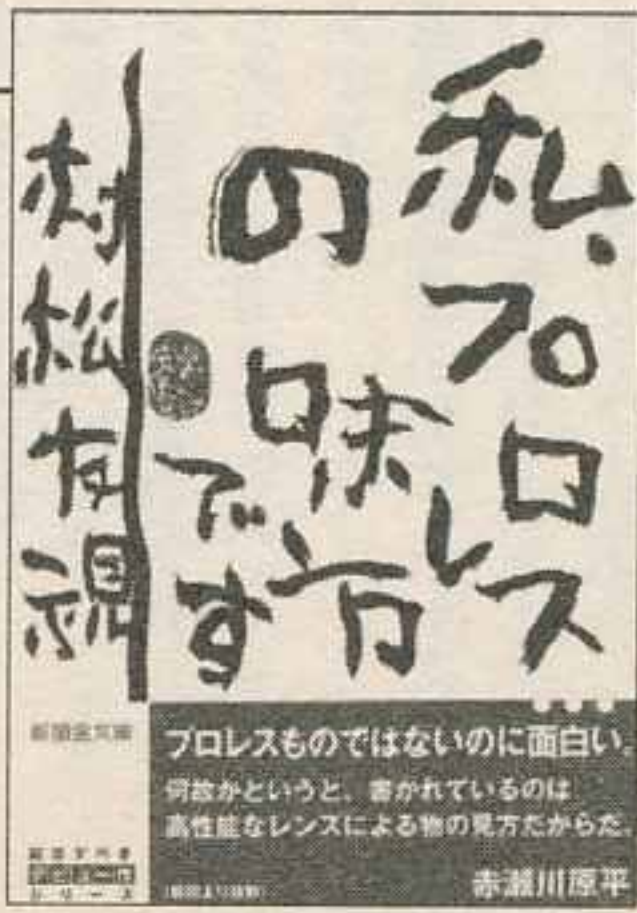 私、プロレス
の味方
です
村松友視
プロレスものではないのに面白い。
何故かというと、書かれているのは
高性能なレンズによる物の見方だからだ。
赤瀬川原平